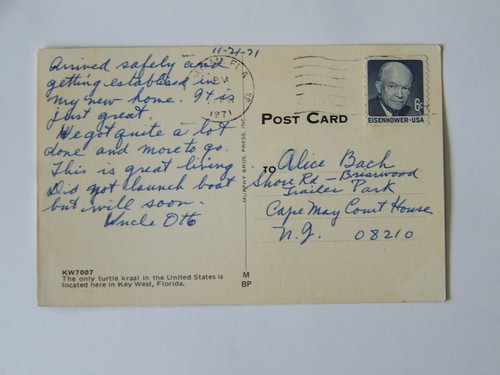 11-21-71
Arrived safely and
getting establised in
my new home. It is
just great.
We got quite a lot
done and more to go.
This is great living
Did not launch boat
but will soon.
Uncle Otto
KW7007
The only turtle kraal in the United States is
located here in Key West, Florida.
FLA
PM
1971
MURPHY BROS. PRESS, INC.
M
BP
6¢
EISENHOWER·USA
POST CARD
TO
Alice Bach
Shore Rd - Briarwood
Trailer Park
Cape May Court House
N.J. 08210